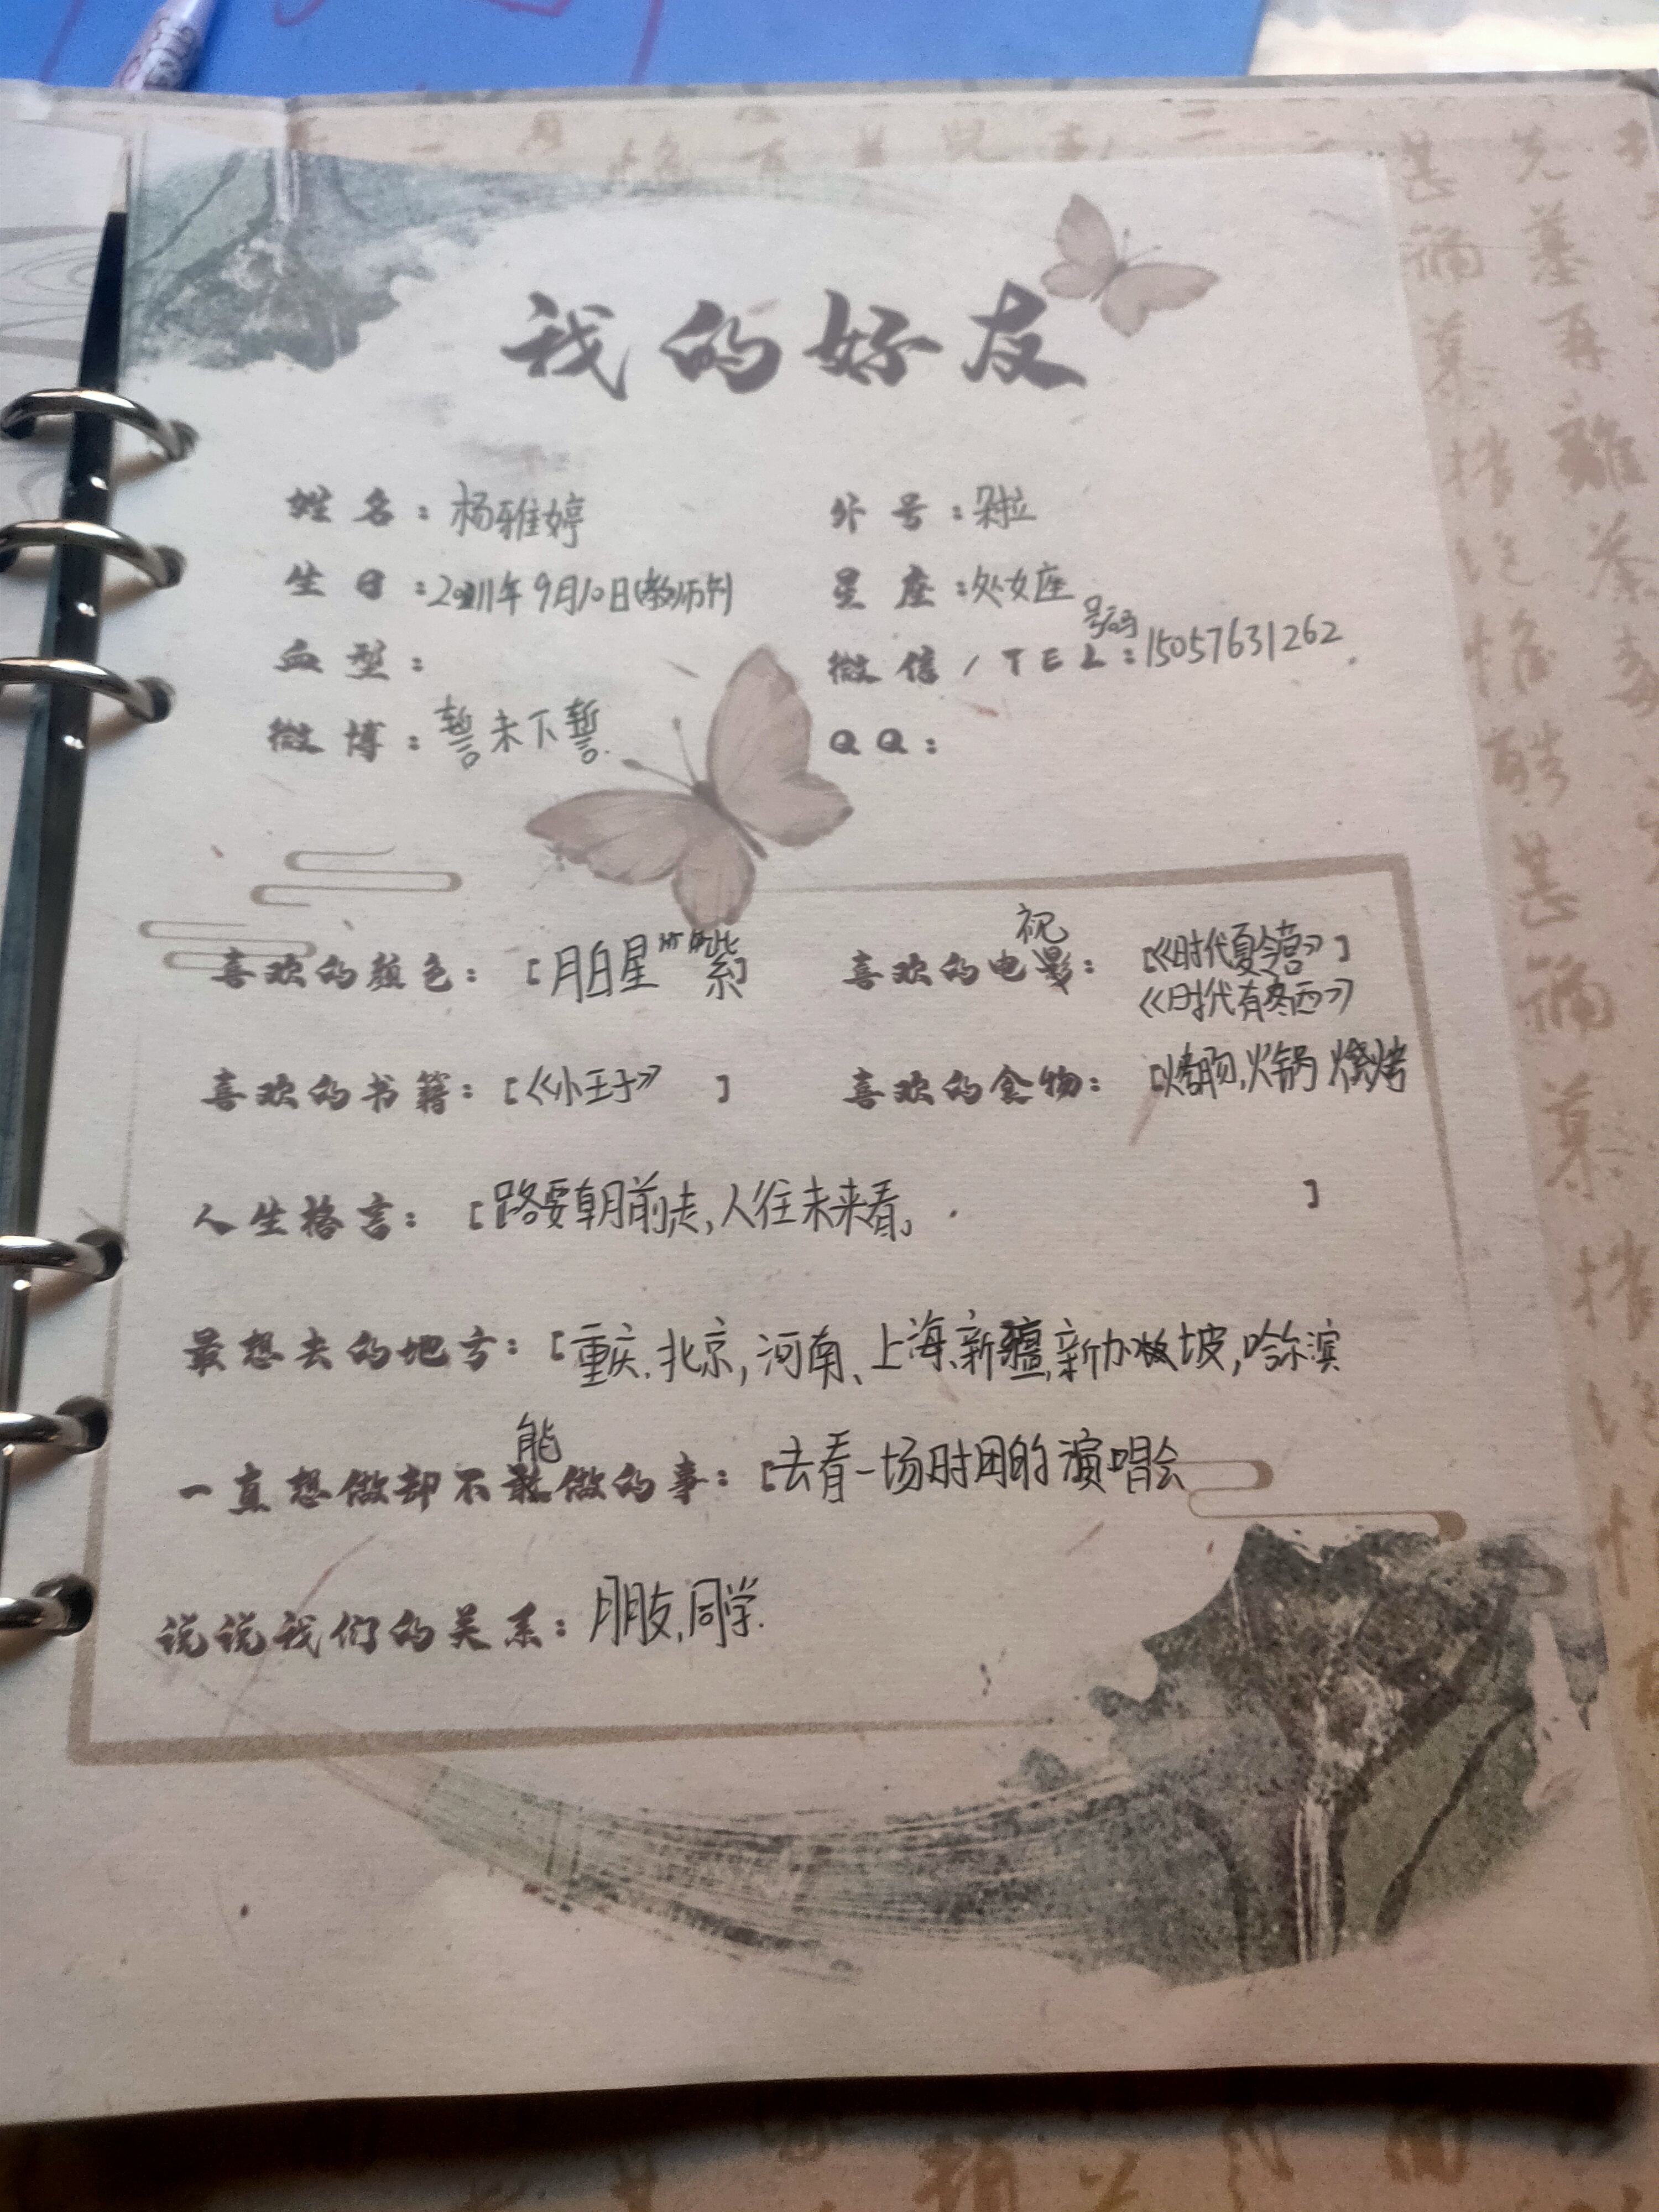 我的好友
姓名：杨雅婷 外号：朵拉
生日：2011年9月10日(教师节) 星座：处女座
号码
血型： 微信/TEL：15057631262
微博：誓未下誓. QQ：
祝
喜欢的颜色：[月白星 紫] 喜欢的电影：[《时代夏令营》]
《时代有冬西》
喜欢的书籍：[《小王子》 ] 喜欢的食物：[烤肠,火锅 烧烤
人生格言：[路要朝前走,人往未来看。 ]
最想去的地方：[重庆,北京,河南、上海、新疆,新加坡,哈尔滨
能
一直想做却不敢做的事：[去看一场时团的演唱会
说说我们的关系：朋友,同学.